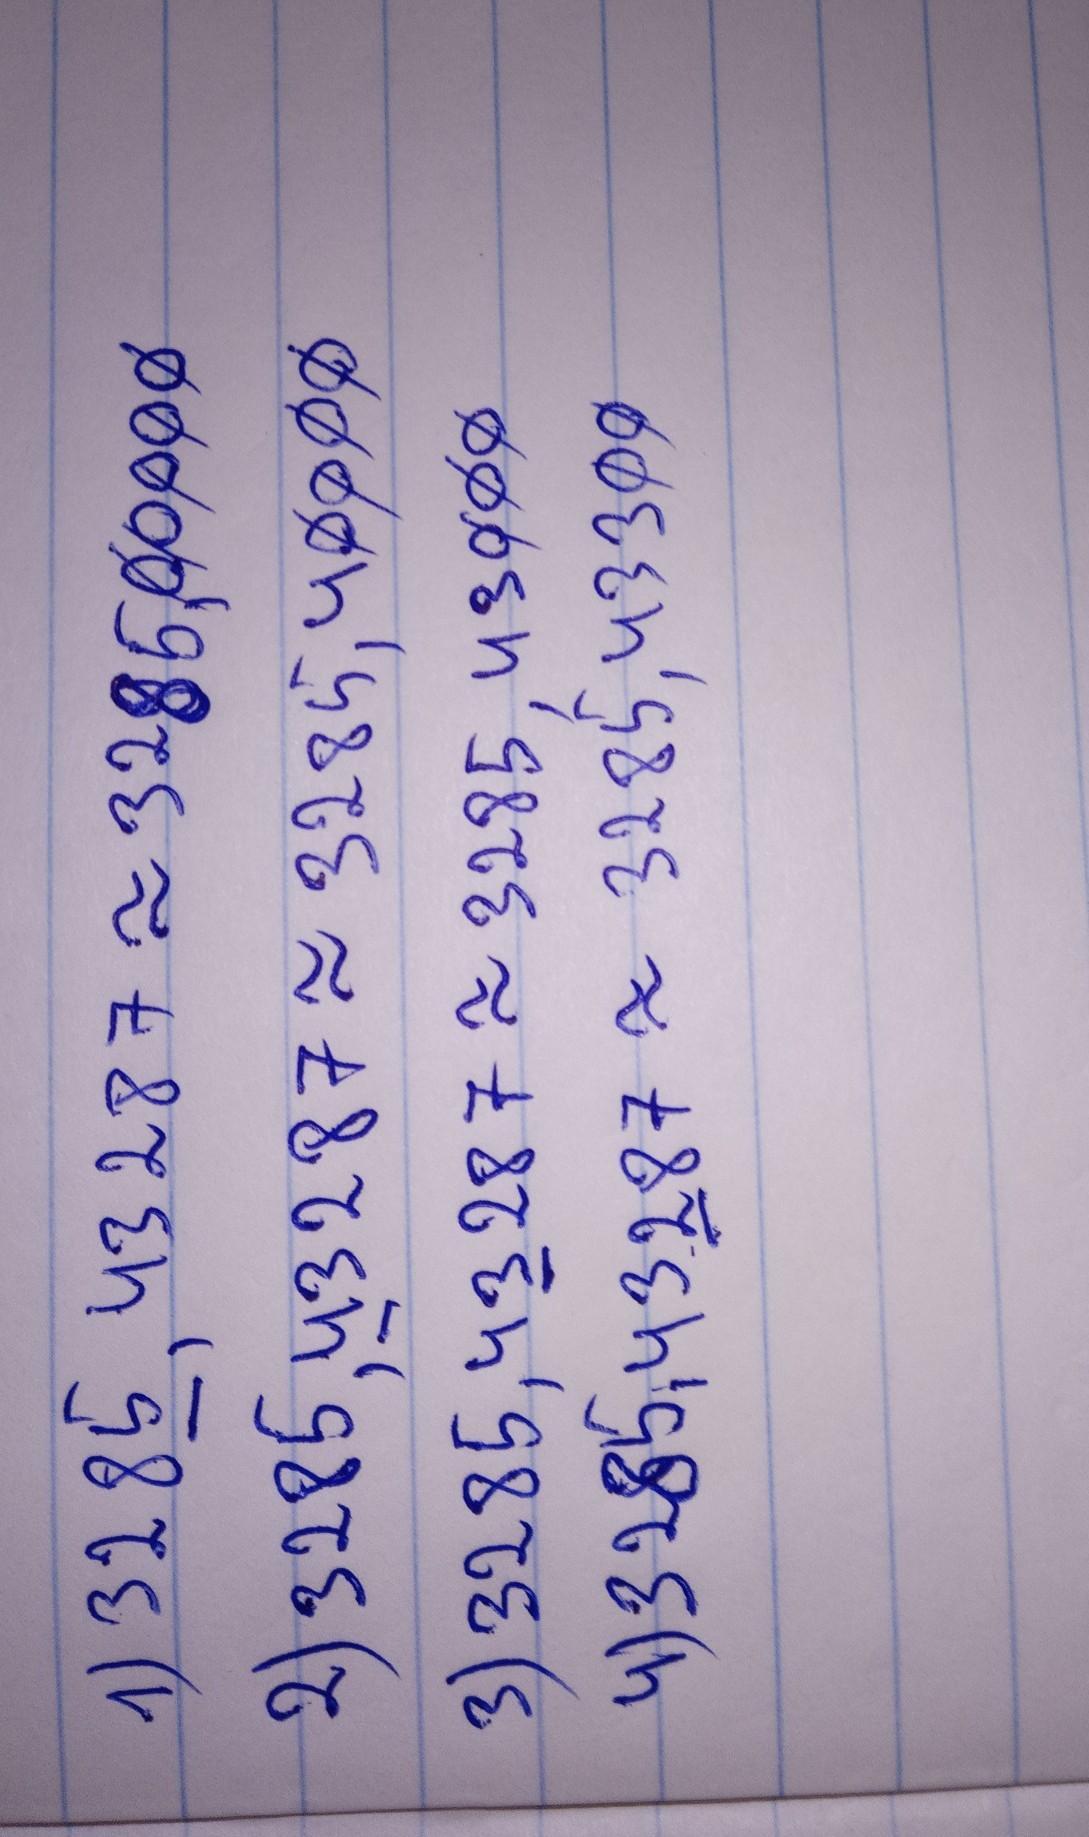 1) 3285,43287 ≈ 3285,00000
2) 3285,43287 ≈ 3285,40000
3) 3285,43287 ≈ 3285,43000
4) 3285,43287 ≈ 3285,43300